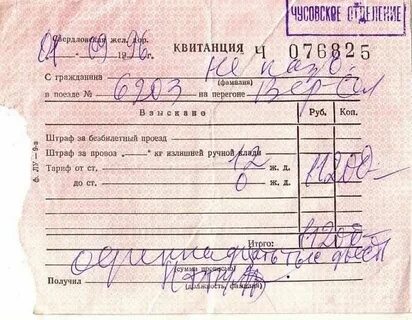 ЧУСОВСКОЕ ОТДЕЛЕНИЕ
Свердловская жел. дор.
09 1996 г. КВИТАНЦИЯ Ч 076825
С гражданина
(фамилия)
в поезде № 6203 на перегоне Вер-Сел
Взыскано Руб. Коп.
Штраф за безбилетный проезд
Штраф за провоз „——“ кг излишней ручной клади
Тариф от ст. 12 ж. д. 11200-
до ст. 0 ж. д.
Итого: 11200-
(сумма прописью)
Получил
(должность, фамилия)
ф. ЛУ—9-а